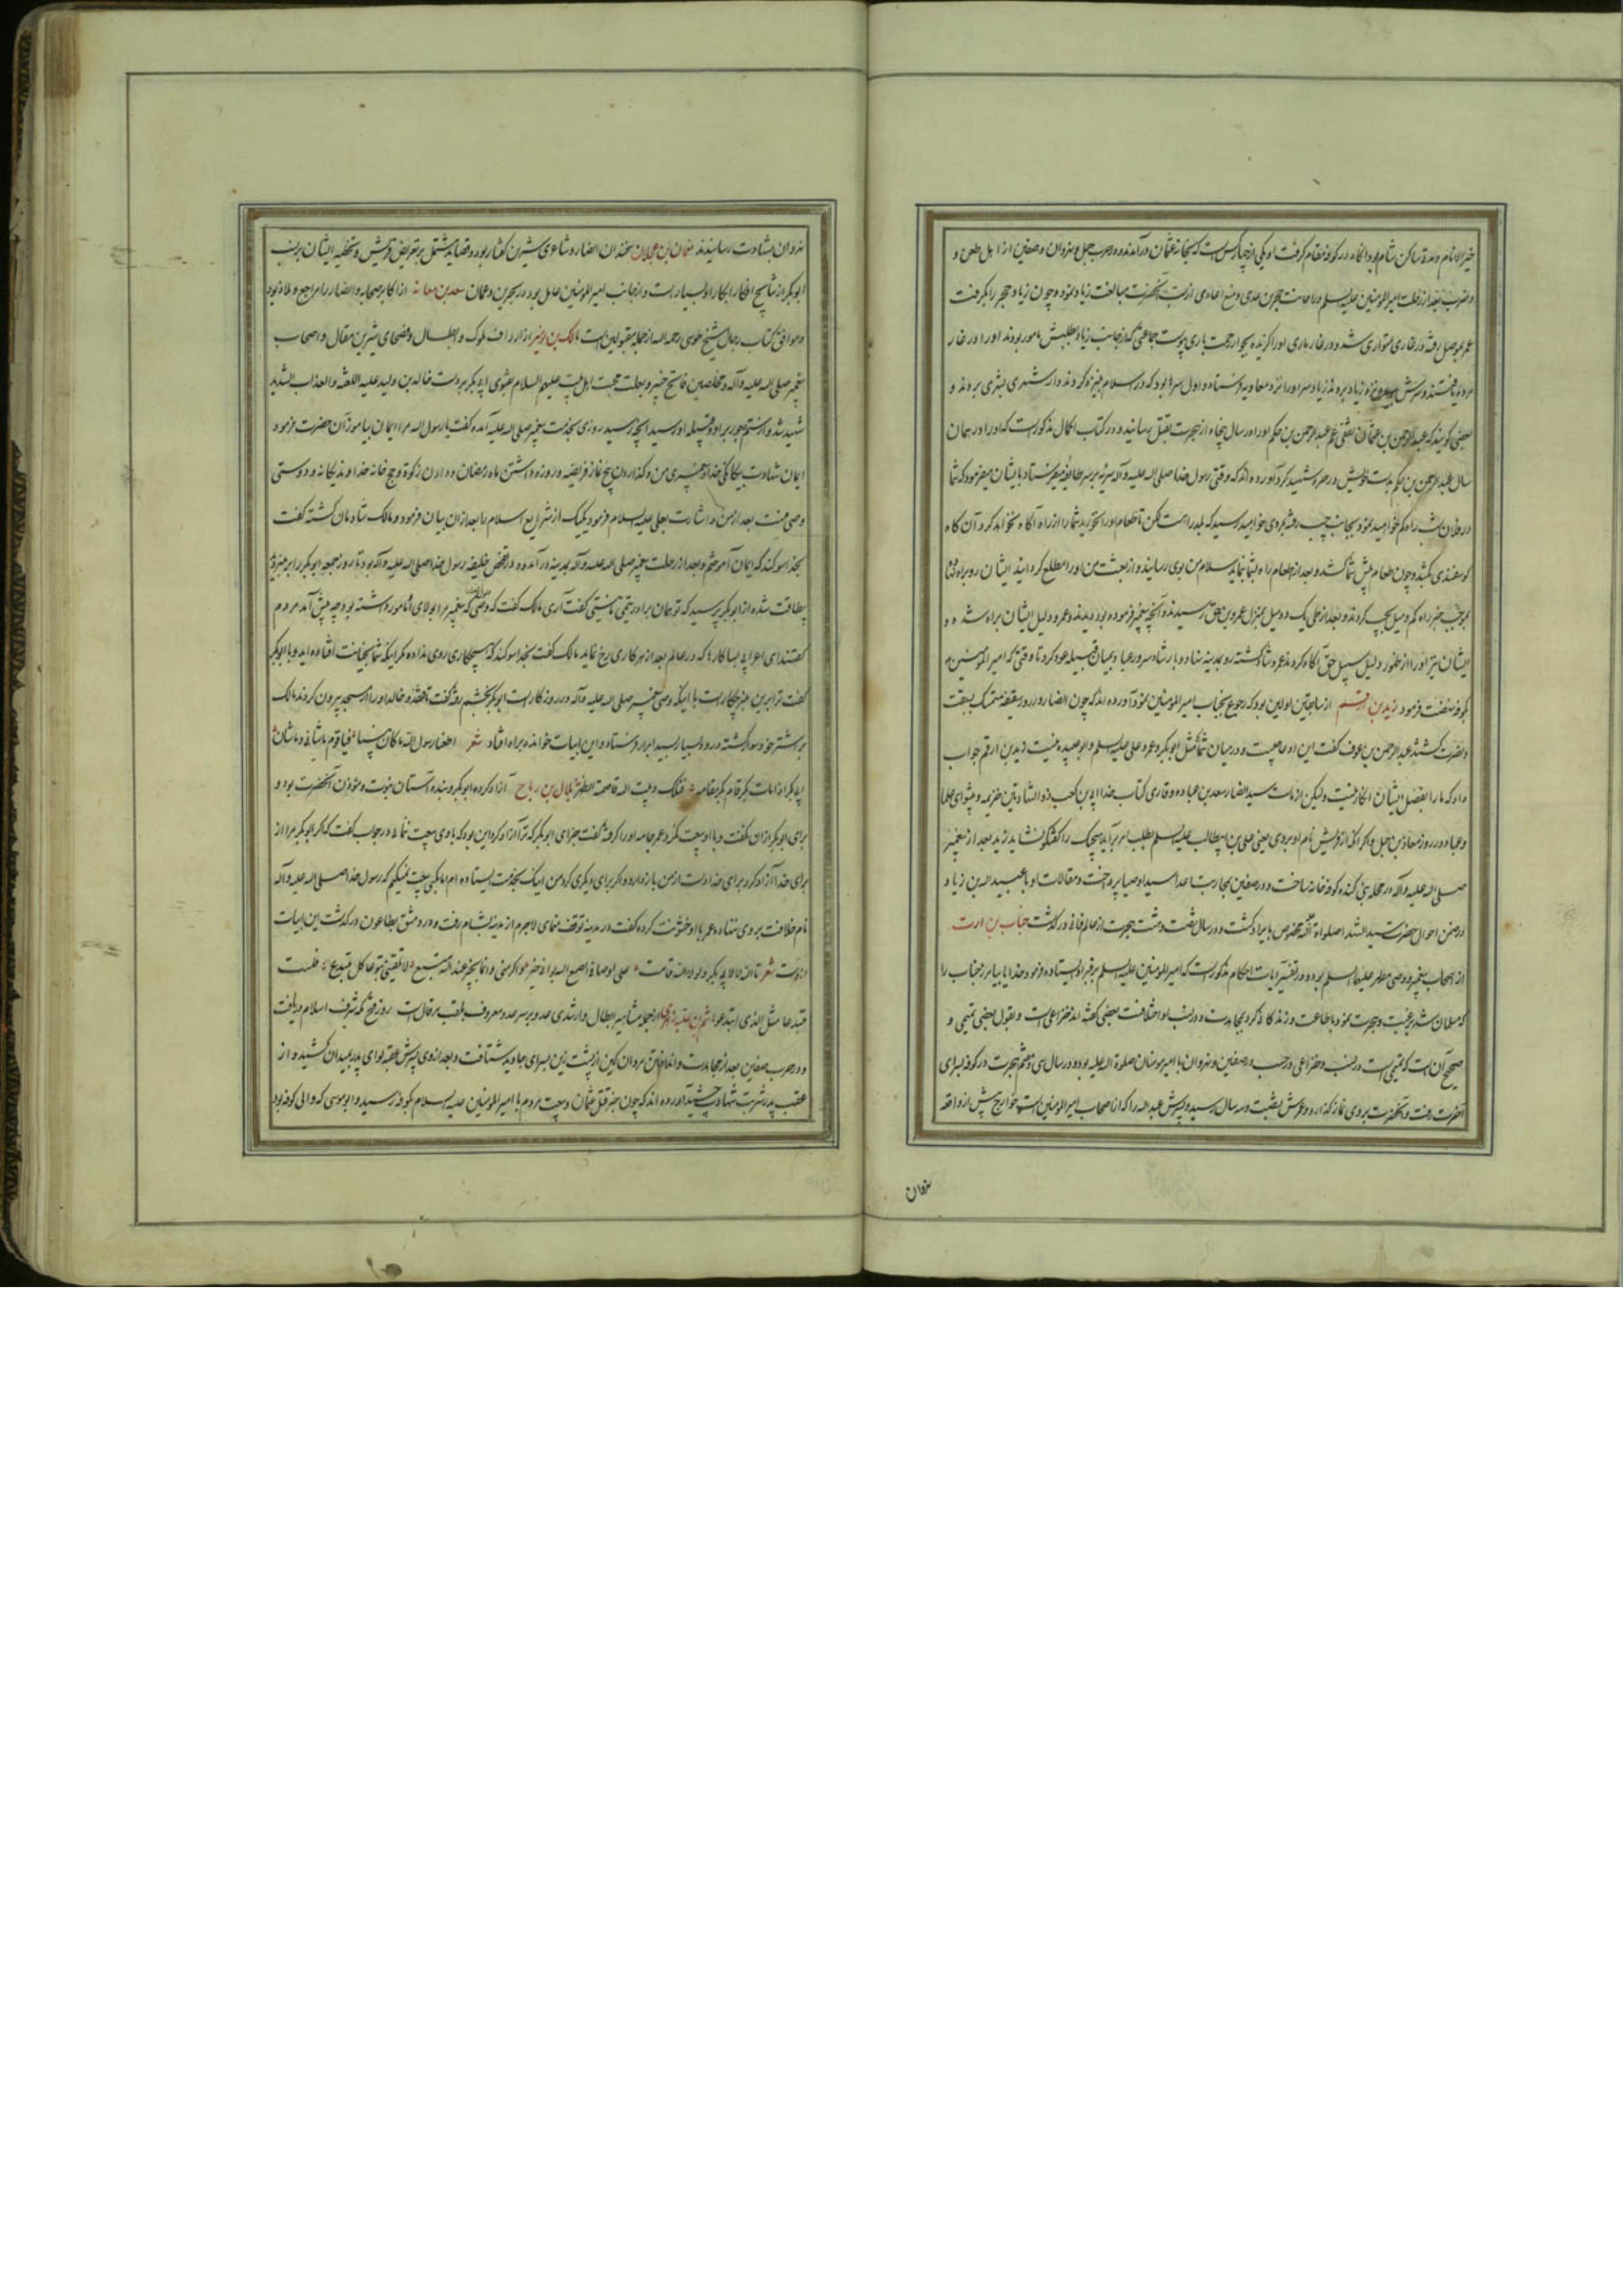 خیرالانام و مدة ساکن شام بود انکاه در کوفه مقام کرفت او یکی از چهار کس است که بخانه عثمان درآمدند و در حرب جمل و نهروان و صفین از اهل طعن و
و ضرب بعد از رحلت امیرالمومنین علیه السلم با حجر بن عدی و منع اعادی از سب آنحضرت مبالغت زیاد نموده چون زیاد حجر را بکرفت
عمر بموصل رفته در غاری متواری شد و در غار ماری اورا کزیده بجوار رحمت باری پیوست جماعتی که از جانب زیاد بطلبش مامور بودند اورا در غار
مرده یافتند و سرش بریده نزد زیاد بردند زیاد سر اورا نزد معاویه فرستاد و اول سری بود که در اسلام بر نیزه کردند و از شهری بشهری بردند و
بعضی کویند که عبدالرحمن بن عثمان ثقفی عم عبدالرحمن بن حکم اورا در سال پنجاه از هجرت بقتل رسانید و در کتاب اکمال مذکور است که اورا در همان
سال عبدالرحمن بن حکم بدست خویش در شهید کرد آورده اند که وقتی رسول خدا صلی الله علیه و آله سریه بر سر طایفه میفرستاد با ایشان میفرمود که شما
در فلان شب راه کم خواهید نمود بجانب چپ رفته بمردی خواهید رسید که بلد راه است لکن تا طعام اورا نخورید شما را از راه آکاه نخواهد کرد آن کاه
کوسفندی بکشد و چون طعام پیش شما کشد و بعد از طعام راه بشما نماید سلام من بوی رسانید و از بعثت من اورا مطلع کردانید ایشان رو براه
بموجب خبر راه کم و میل بچپ کردند و بعد از طی یک دو میل بمنزل عمرو بن حمق رسیدند و آنچه پیغمبر فرموده بود دیدند و عمرو دلیل ایشان براه شد و
ایشان نیز اورا از ظهور دلیل سبیل حق آکاه کردند عمرو شاد کشته رو بمدینه نهاد و بارشاد سرور عباد بمیان قبیله عود کرد تا وقتی که امیرالمومنین
بکوفه نهضت فرمود زید بن ارقم از سابقین اولین بود که رجوع بجناب امیرالمومنین نمود آورده اند که چون انصار در روز سقیفه متمسک بسبقت
و نصرت کشتند عبدالرحمن بن عوف کفت این ادعا صحیح و در میان شما مثل ابوبکر و عمر و علی علیه السلم و ابو عبیده نیست زید بن ارقم جواب
داد که ما را بفضل ایشان انکار نیست ولیکن از ماست سید انصار سعد بن عباده و قاری کتاب خدا ابی بن کعب ذو الشهادتین خزیمه و پیشوای علما
و عباد در روز معاد معاذ بن جبل و اکر انکه از قریش نام او بروی یعنی علی بن ابیطالب علیه السلم بطلب امر برآید هیچیک را کفتکو نشاید زید بعد از پیغمبر
صلی الله علیه و آله در محله بنی کنده کوفه خانه ساخت و در صفین بمحاربت اعدا سید اوصیا پرداخت و مقالات او با عبیدالله بن زیاد
در ضمن احوال حضرت سید الشهدا صلواة الله مخصوص بایراد کشت و در سال شصت و هشت هجرت از عالم فانی درکذشت خباب بن ارت
از اصحاب پیغمبر و وصی مطهر علیهما السلم بود و در تفسیر آیات احکام مذکور است که امیرالمومنین علیه السلم بر قبر او ایستاده فرمود خدایا بیامرز خباب را
که مسلمان شد برغبت و هجرت نمود باطاعت و زندکانی کرد بمجاهدت و در نسب او اختلافست بعضی کفته اند خزاعی است و بقول بعضی تمیمی و
صحیح آن است که تمیمی است در نسب و خزاعی و در حرب صفین و نهروان با امیر مومنان صلوة الله علیه بود و در سال سی و هشتم هجرت در کوفه بسرای
آخرت رفت و آنحضرت بروی نماز کذارد و عمرش بشصت و سه سال رسید و پسرش عبدالله را که از اصحاب امیرالمومنین است خوارج پیش از واقعه
نهروان
نهروان بشهادت رسانیدند نعمان بن عجلان سخندان انصار و شاعری شیرین کفتار بود و قصاید مشتمل بر تعریض قریش و تخطیه ایشان بر نصب
ابوبکر از نتایج افکار ابکار او بسیار است و از جانب امیرالمومنین عامل بود در بحرین و عمان سعد بن معاذ از اکابر صحابه و انصار را مرجع و ملاذ بود
و موافق کتاب رجال شیخ طوسی رحمه الله از جمله مقبولین است مالک بن نویره از ارداف ملوک و ابطال و فصحای شیرین مقال و اصحاب
پیغمبر صلی الله علیه و آله و مخلصین فاتح خیبر و بعلت محبت اهل بیت علیهم السلام بفتوی ابوبکر بر دست خالد بن ولید علیه اللعنه و العذاب الشدید
شهید شد و از ستم و جور بر او و قبیله او رسید آنچه رسید روزی بخدمت پیغمبر صلی الله علیه آمده کفت یا رسول الله مرا ایمان بیاموز آن حضرت فرمود
ایمان شهادت بیکانکی خدا و پیغمبری من و کذاردن پنج نماز فریضه و روزه داشتن ماه رمضان و دادن زکوة و حج خانه خداوند یکانه و دوستی
وصی منست بعد از من و اشارت بعلی علیه السلام فرمود و یکیک از شرایع اسلام را بعد از آن بیان فرمود و مالک شادمان کشته کفت
بخدا سوکند که ایمان آموختم و بعد از رحلت پیغمبر صلی الله علیه و آله بمدینه درآمده در تفحص خلیفه رسول خدا صلی الله علیه و آله بود تا روز جمعه ابوبکر را بر منبر دید
بیطاقت شده از ابوبکر پرسید که تو همان برادر تیمی ما نیستی کفت آری مالک کفت که وصی که پیغمبر مرا بولای او مامور داشته بود چه پیش آمد مردم
کفتند ای اعرابی بسا کارها که در عالم بعد از هر کاری رخ نماید مالک کفت بخدا سوکند که هیچکاری روی نداده مکر اینکه شما بخیانت افتاده اید و با ابوبکر
کفت ترا بر این منبر چکار است با اینکه وصی پیغمبر صلی الله علیه و آله در روزکار است ابوبکر بخشم رفته کفت تا قنفذ و خالد اورا از مسجد بیرون کردند مالک
بر اشتر خود سوار کشته درود بسیار بسید ابرار فرستاد و این ابیات خوانده براه افتاد شعر اطعنا رسول الله ما کان بیننا فیا قوم ما شانی و ما شان
ابی بکر اذا مات بکر قام بکر مقامه فتلک و بیت الله قاصمة الظهر بلال بن رباح آزاد کرده ابوبکر و بنده آستان نبوت و موذن آنحضرت بود و
برای ابوبکر اذان نکفت و با او بیعت نکرد عمر جامه اورا کرفته کفت جزای ابوبکر که ترا آزاد کرد این بود که با وی بیعت ننمائی در جواب کفت که اکر ابوبکر مرا از
برای خدا آزاد کرد برای خدا دست از من باز دارد و اکر برای دیکری کرد من اینک بخدمت ایستاده ام اما بکسی بیعت نمیکنم که رسول خدا صلی الله علیه و آله
نام خلافت بروی ننهاده عمر با او خشونت کرده کفت در مدینه توقف منمای لاجرم از مدینه بشام رفت و در دمشق بطاعون درکذشت این ابیات
از اوست شعر تالله لا لابی بکر و لولا الله قامت علی اوصالی اضبع الله بوانی خیرا و اکرمنی و انما الخیر عند الله متبع لا تلقینی تبوعا کل مبتدع فلست
مبتدعا مثل الذی ابتدعوا هاشم بن عتبه زهری از جمله مشاهیر ابطال و ارشدی عدد بر سر عدد معروف بلقب مرقال است روز فتح مکه شرف اسلام دریافت
و در حرب صفین بعد از مجاهدت و انداختن مردان کین از پشت زین بسرای جاوید شتافت و بعد از وی پسرش عقبه لوای پدر بمیدان کشید و از
عقب پدر شربت شهادت چشید آورده اند که چون خبر قتل عثمان و بیعت مردم با امیرالمومنین علیه السلام بکوفه رسید و ابوموسی که والی کوفه بود